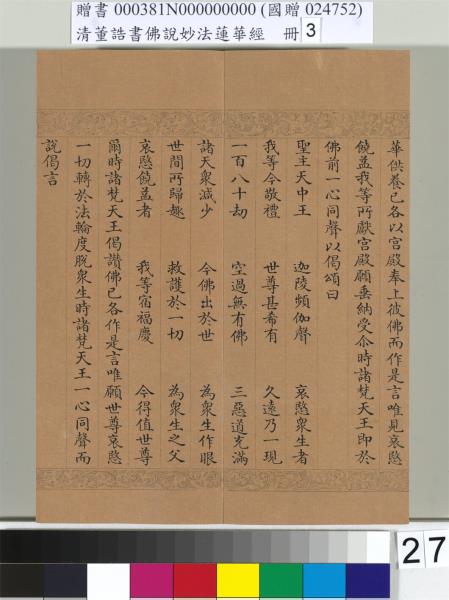 贈書 000381N000000000 (國贈 024752)
清董誥書佛說妙法蓮華經 冊 3
華供養已各以宮殿奉上彼佛而作是言唯見哀愍
饒益我等所獻宮殿願垂納受尒時諸梵天王即於
佛前一心同聲以偈頌曰
聖主天中王 迦陵頻伽聲 哀愍衆生者
我等今敬禮 世尊甚希有 久遠乃一現
一百八十劫 空過無有佛 三惡道充滿
諸天衆減少 今佛出於世 為衆生作眼
世間所歸趣 救護於一切 為衆生之父
哀愍饒益者 我等宿福慶 今得值世尊
爾時諸梵天王偈讚佛已各作是言唯願世尊哀愍
一切轉於法輪度脫衆生時諸梵天王一心同聲而
說偈言
27